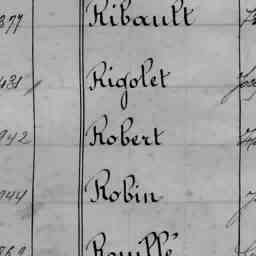 377 Ribault
431 Rigolet
942 Robert
944 Robin
Rouillé